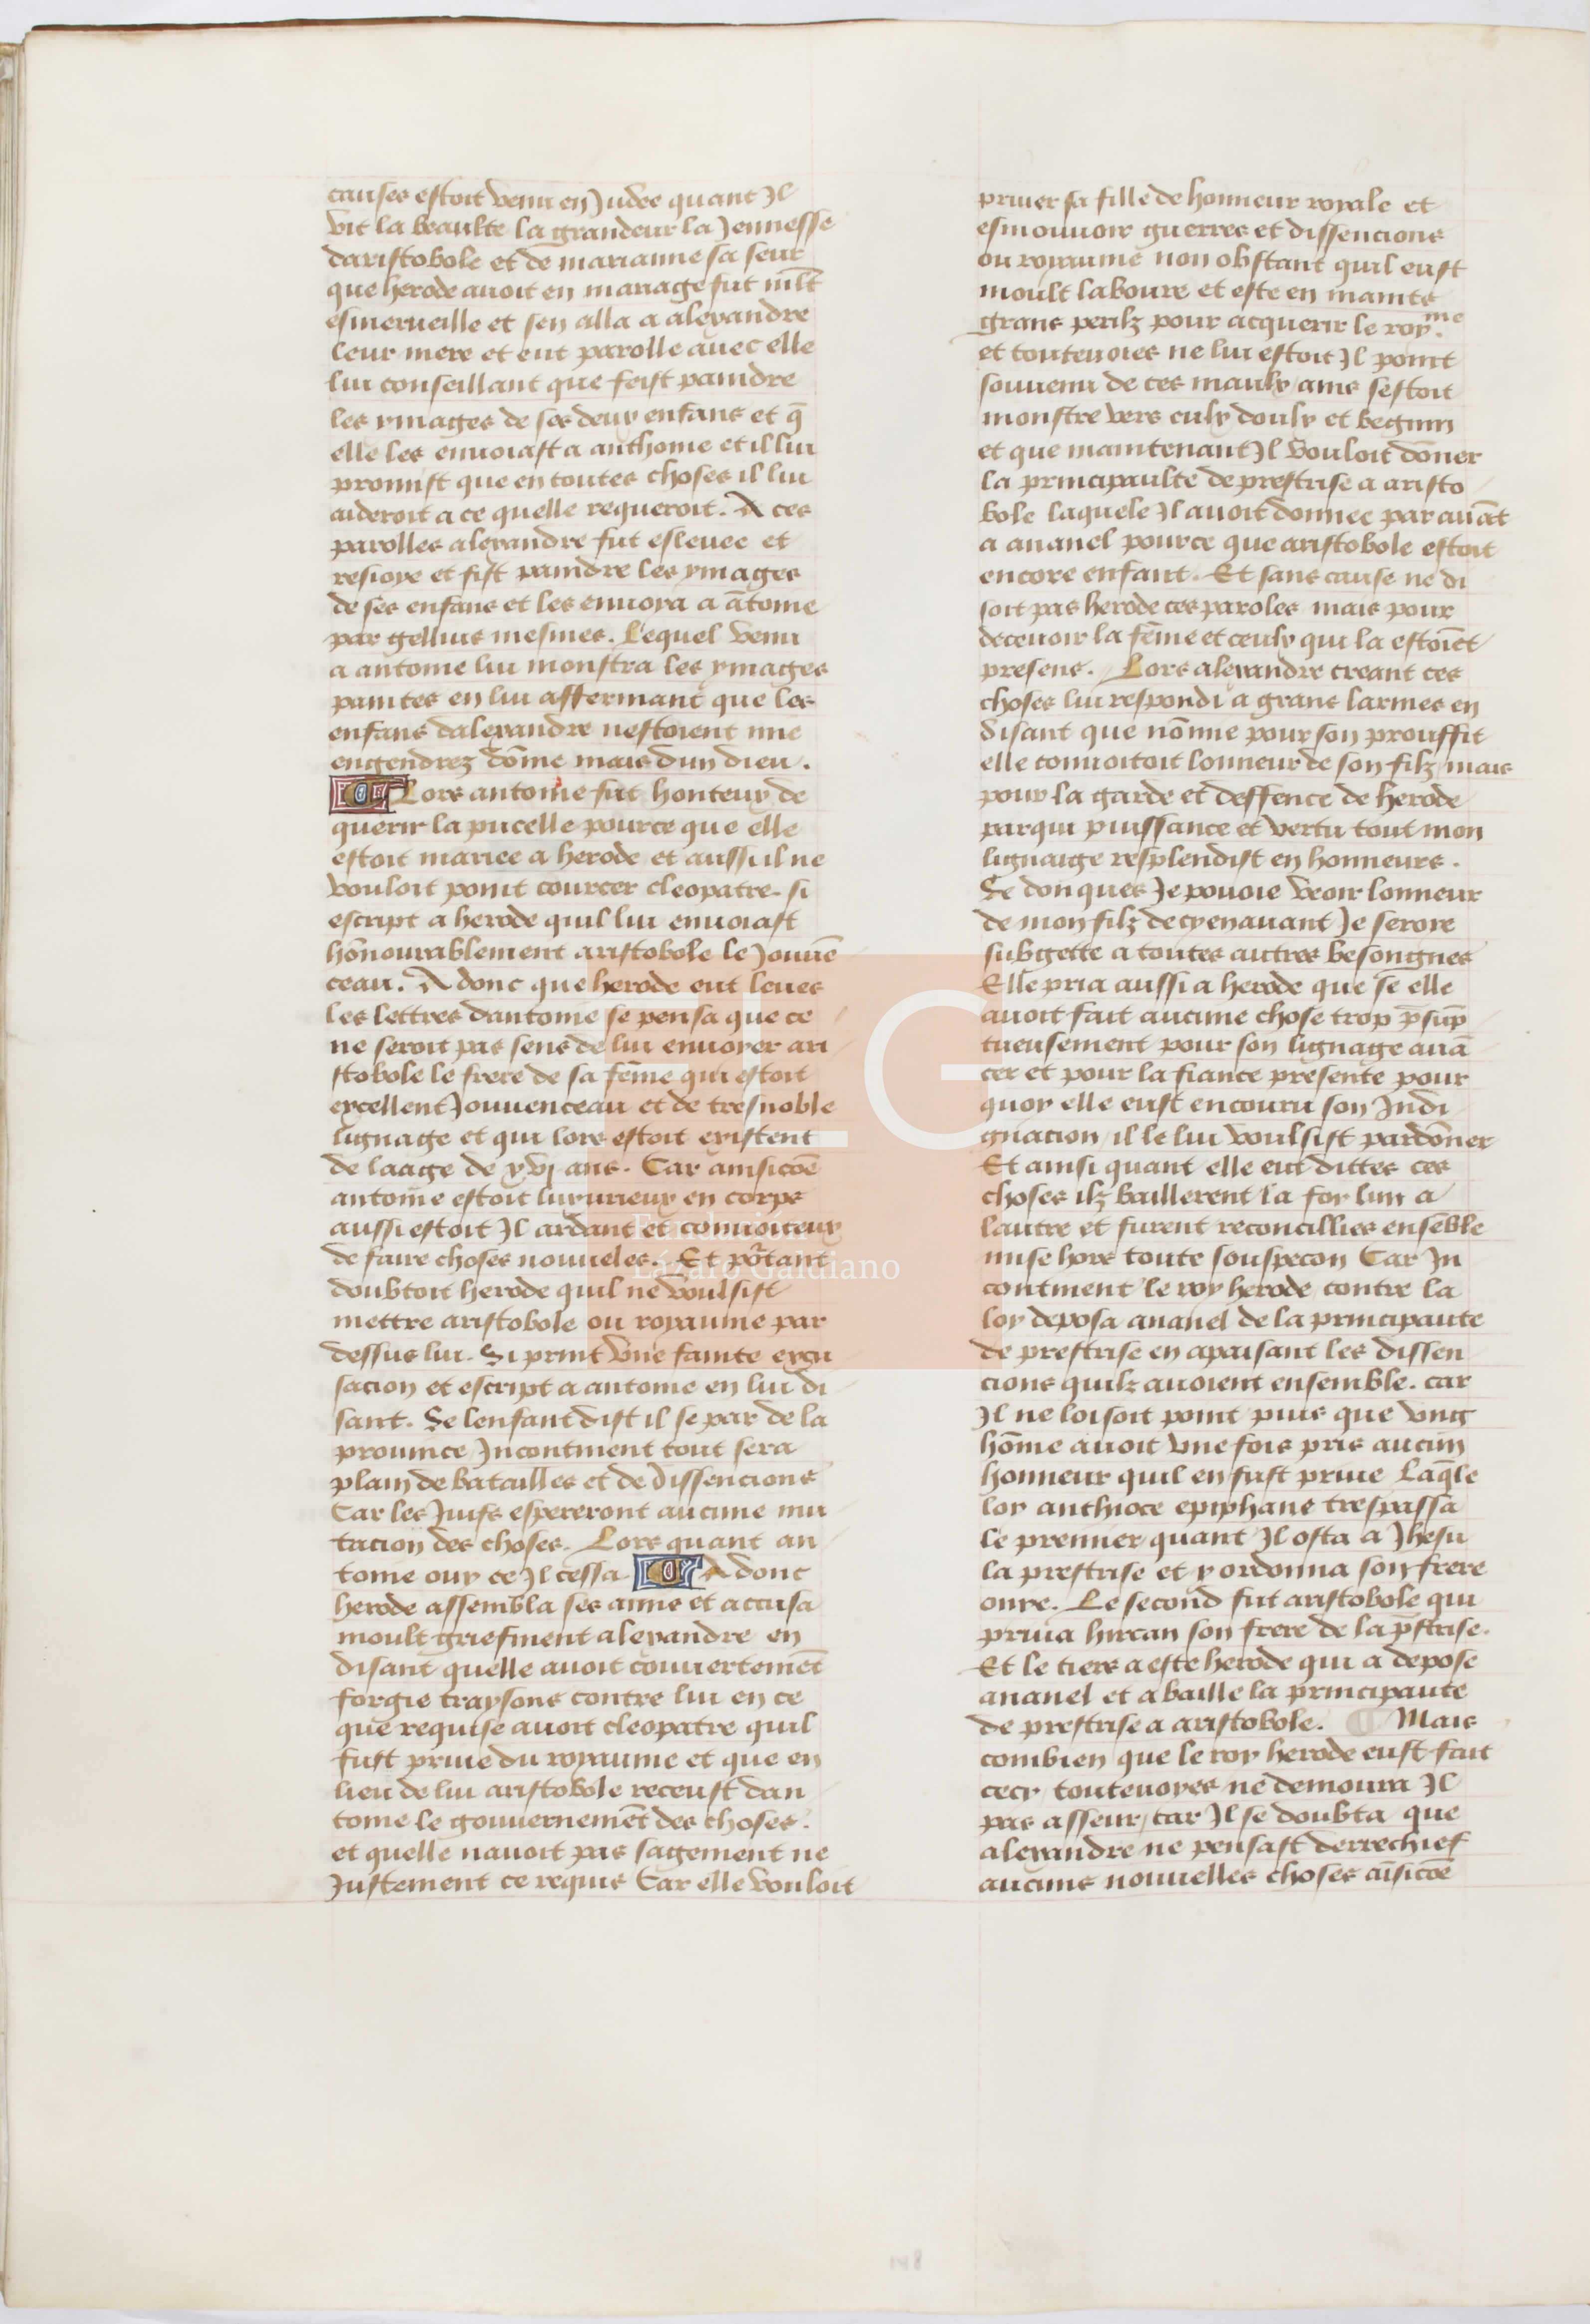 causes estoit venu en Judee quant Il
vit la beaulte la grandeur la Jennesse
daristobole et de marianne sa seur
que herode auoit en mariage fut mlt̄
esmerueille et sen alla a alexandre
leur mere et eut parolle auec elle
lui conseillant que feist paindre
les ymages de ses deux enfans et q̄
elle les enuoiast a anthoine et il lui
promist que en toutes choses il lui
aideroit a ce quelle requeroit. A ces
parolles alexandre fut esleuee et
resioye et fist paindre les ymages
de ses enfans et les enuoya a ātoine
par gellius mesmes. Lequel venu
a antoine lui monstra les ymages
paintes en lui affermant que les
enfans dalexandre nestoient mie
engendrez dōme mais dun dieu.
Lors antoine fut honteux de
querir la pucelle pource que elle
estoit mariee a herode et aussi il ne
vouloit point courcer cleopatre. si
escript a herode quil lui enuoiast
hōnourablement aristobole le Jouuē
ceau. A donc que herode eut leues
les lettres dantoine se pensa que ce
ne seroit pas sens de lui enuoyer ari
stobole le frere de sa fēme qui estoit
excellent Jouuenceau et de tresnoble
lignage et qui lors estoit existent
de laage de xvj ans. Car ainsicōe
antoine estoit luxurieux en corps
aussi estoit Il ardant et conuoiteux
de faire choses nouueles. Et po᷑tant
doubtoit herode quil ne voulsist
mettre aristobole ou royaume par
dessus lui. Si print vne fainte excu
sacion et escript a antoine en lui di
sant. Se lenfant dist il se par de la
prouince Incontinent tout sera
plain de batailles et de dissencions
Car les Juifs espereront aucune mu
tacion des choses. Lors quant an
toine ouy ce Il cessa A donc
herode assembla ses amis et accusa
moult griefment alexandre en
disant quelle auoit couuertemēt
forgie traysons contre lui en ce
que requise auoit cleopatre quil
fust priue du royaume et que en
lieu de lui aristobole receust dan
toine le gouuernemēt des choses.
et quelle nauoit pas sagement ne
Justement ce requis Car elle vouloit
priuer sa fille de honneur royale et
esmouuoir guerres et dissencions
ou royaume non obstant quil eust
moult laboure et este en mains
grans perilz pour acquerir le royme
et touteuoies ne lui estoit Il point
souuenu de ces maulx ains sestoit
monstre vers eulx doulx et begnin
et que maintenant Il vouloit dōner
la principaulte de prestrise a aristo
bole laquele Il auoit donnee par auāt
a ananel pource que aristobole estoit
encore enfant. Et sans cause ne di
soit pas herode ces paroles mais pour
deceuoir la fēme et ceulx qui la estoiēt
presens. Lors alexandre creant ces
choses lui respondi a grans larmes en
disant que nōmie pour son prouffit
elle conuoitoit lonneur de son filz mais
pour la garde et deffence de herode
par qui puissance et vertu tout mon
lignaige resplendist en honneurs.
Se donques Je pouoie veoir lonneur
de mon filz de cy en auant Je seroie
subgette a toutes autres besongnes
Elle pria aussi a herode que se elle
auoit fait aucune chose trop p̄sūp
tueusement pour son lignage auā
cer et pour la fiance presente pour
quoy elle eust encouru son Indi
gnacion il le lui voulsist pardōner
Et ainsi quant elle eut dittes ces
choses ilz baillerent la foy lun a
lautre et furent reconcillies ensēble
mise hors toute souspecon Car In
continent le roy herode contre la
loy deposa ananel de la principaute
de prestrise en apaisant les dissen
cions quilz auoient ensemble. car
Il ne loisoit point puis que vng
hōme auoit vne fois pris aucun
honneur quil en fust priue Laq̄le
loy anthioce epiphans trespassa
le premier quant Il osta a Jhesu
la prestrise et y ordonna son frere
onye. Le second fut aristobole qui
priua hircan son frere de la p̄strise.
Et le tiers a este herode qui a depose
ananel et a baille la principaute
de prestrise a aristobole. Mais
combien que le roy herode eust fait
cecy touteuoyes ne demoura Il
pas asseur, car Il se doubta que
alexandre ne pensast derrechief
aucuns nouuelles choses aīsicōe
LG
Fundación
Lázaro Galdiano
148